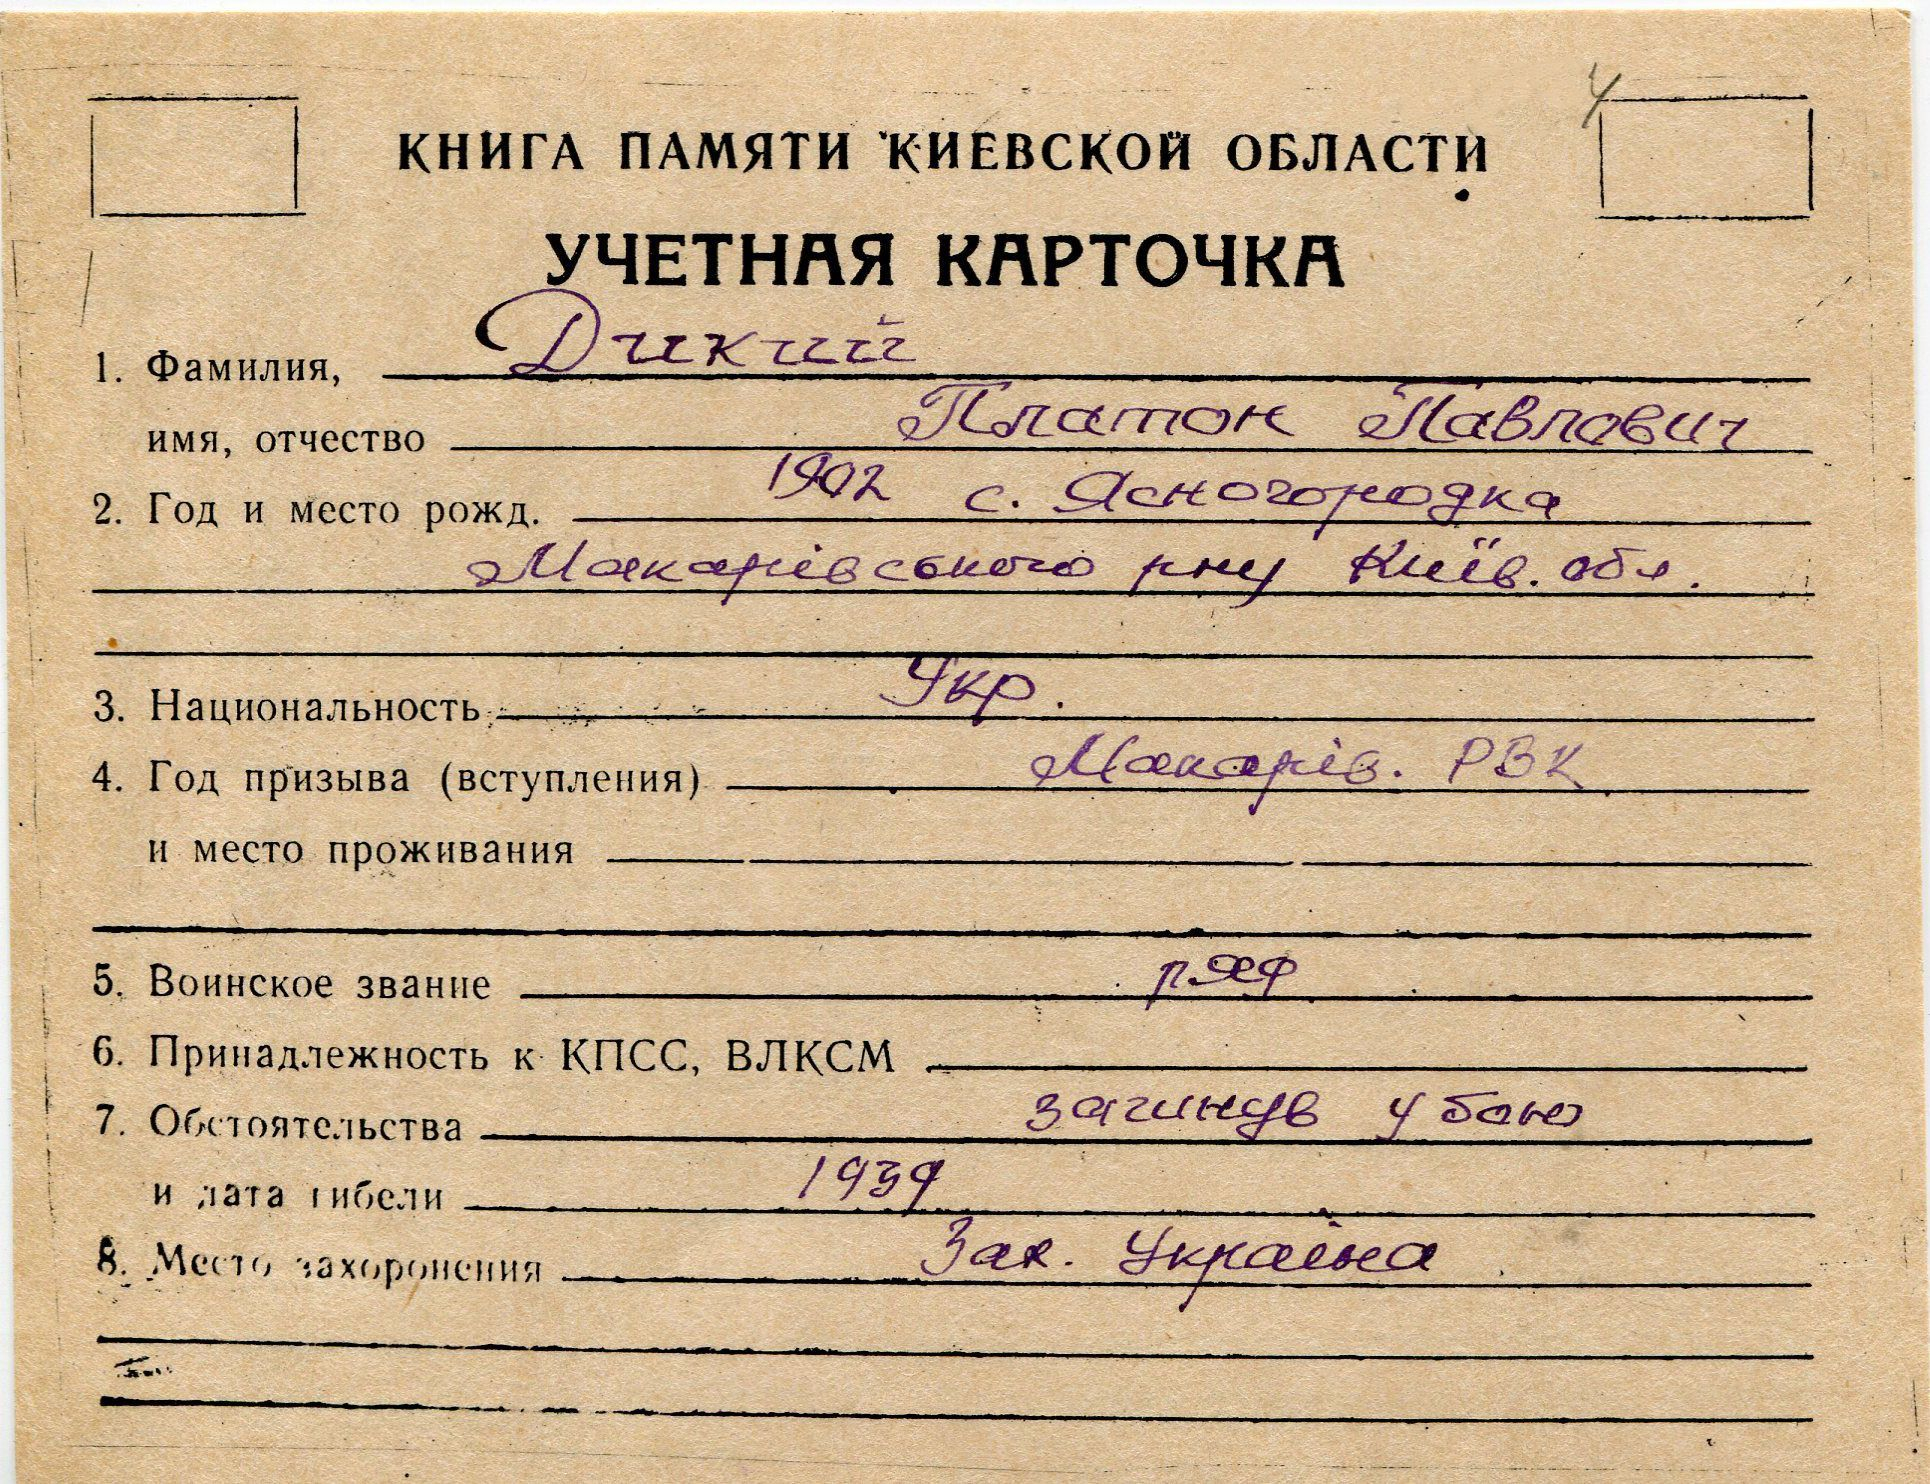 ч
КНИГА ПАМЯТИ КИЕВСКОЙ ОБЛАСТИ
УЧЕТНАЯ КАРТОЧКА
1. Фамилия, Дикий
имя, отчество Платон Павлович
2. Год и место рожд. 1902 с. Ясногородка
Макарівського рну Київ. обл.
3. Национальность Укр.
4. Год призыва (вступления) Макарів. РВК
и место проживания
5. Воинское звание ряд
6. Принадлежность к КПСС, ВЛКСМ
7. Обстоятельства загинув у бою
и дата гибели 1939
8. Место захоронения Зах. Україна